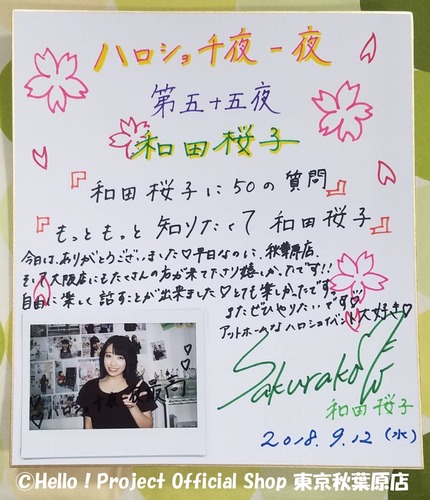 ハロショ千夜一夜
第五十五夜
和田桜子
『和田桜子に50の質問』
『もっともっと知りたくて和田桜子』
今日は、ありがとうございました♡平日なのに、秋葉原店、
そして大阪店にもたくさんの方が来て下さり嬉しかったです!!
自由に楽しく話すことが出来ました♡とても楽しかったです。
またぜひやりたいです♡
アットホームなハロショイベント大好き♡
ハロショ千夜一夜最高
Sakurako
和田桜子
2018.9.12(水)
©Hello！Project Official Shop 東京秋葉原店